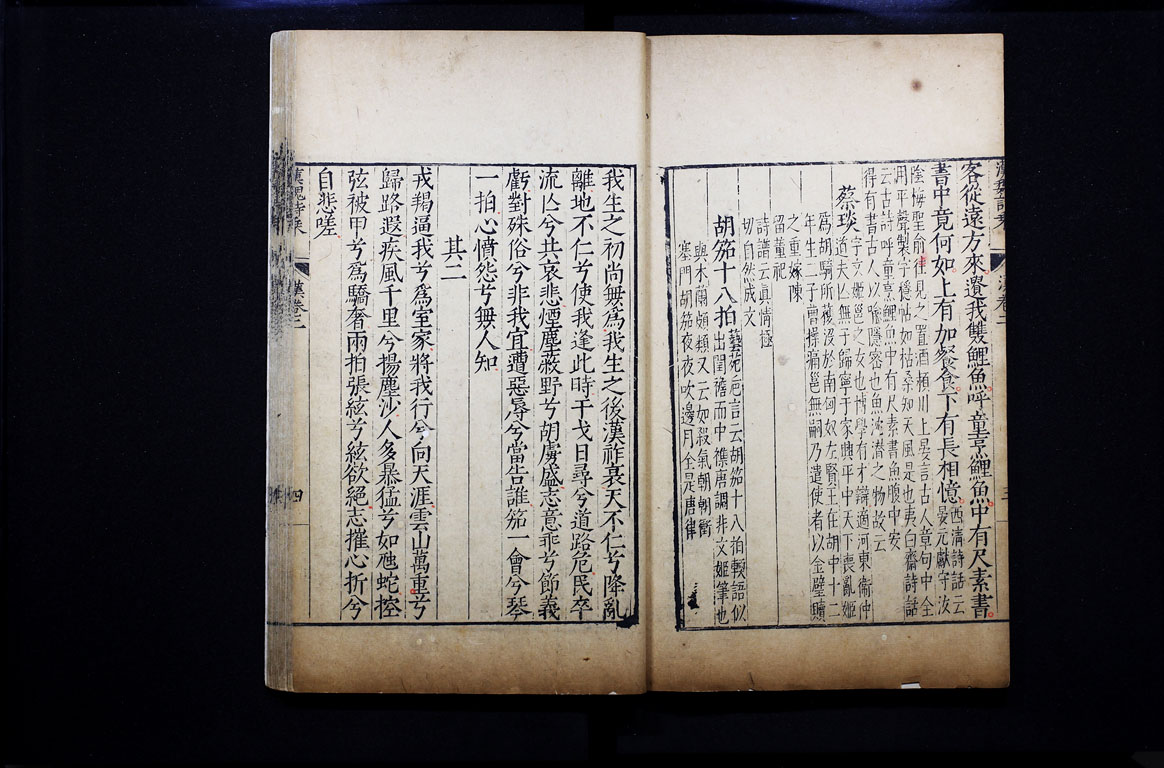 客從遠方來遺我雙鯉魚呼童烹鯉魚中有尺素書
書中竟何如上有加餐食下有長相憶西清詩話云
晏元獻守汝
陰梅聖俞往見之置酒潁川上晏言古人章句中全
用平聲製字穩帖如枯桑知天風是也夷白齋詩話
云古詩呼童烹鯉魚中有尺素書魚腹中安
得有書古人以喻隱密也魚沈潛之物故云
蔡琰字文姬邕之女也博學有才辯適河東衛仲
道夫亡無子歸寧于家興平中天下喪亂姬
爲胡騎所獲沒於南匈奴左賢王在胡中十二
年生二子曹操痛邕無嗣乃遣使者以金璧贖
之重嫁陳
留董祀
詩譜云真情極
切自然成文
胡笳十八拍藝苑巵言云胡笳十八拍輭語似
出閨襜而中襍唐調非文姬筆也
與木蘭頗類又云如殺氣朝朝衝
塞門胡笳夜夜吹邊月全是唐律
我生之初尚無爲我生之後漢祚衰天不仁兮降亂
離地不仁兮使我逢此時干戈日尋兮道路危民卒
流亡兮共哀悲煙塵蔽野兮胡虜盛志意乖兮節義
虧對殊俗兮非我宜遭惡辱兮當告誰笳一會兮琴
一拍心憤怨兮無人知
其二
戎羯逼我兮爲室家將我行兮向天涯雲山萬重兮
歸路遐疾風千里兮揚塵沙人多暴猛兮如虺蛇控
弦被甲兮爲驕奢兩拍張絃兮絃欲絕志摧心折兮
自悲嗟
漢魏詩乘 漢卷三 四